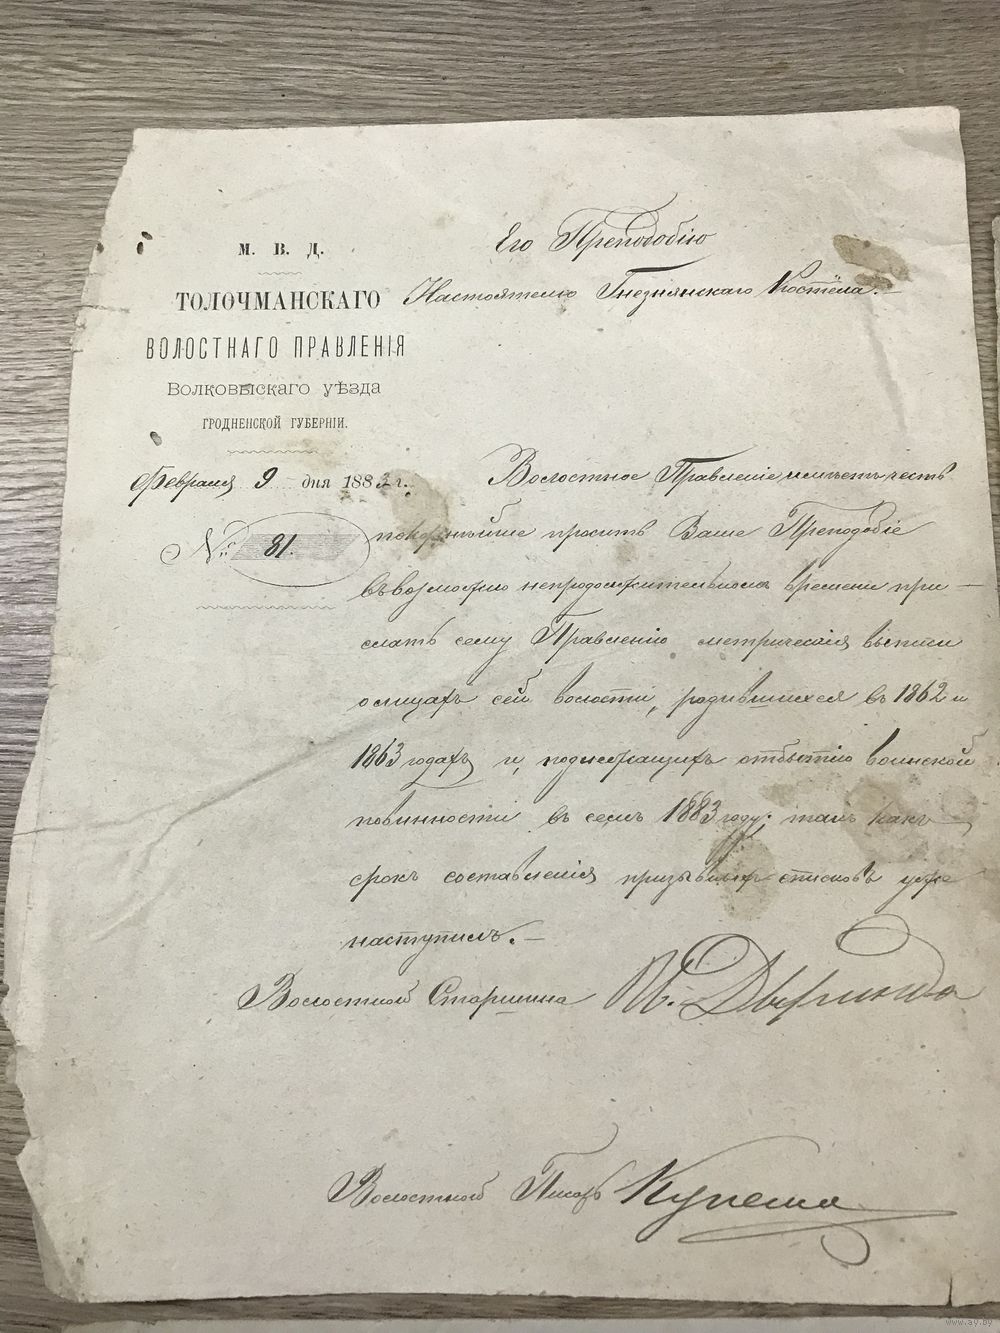 М. В. Д.
ТОЛОЧМАНСКАГО
ВОЛОСТНАГО ПРАВЛЕНІЯ
ВОЛКОВЫСКАГО УѢЗДА
ГРОДНЕНСКОЙ ГУБЕРНІИ.
Февраля 9 дня 1883 г.
№ 81.
Его Преподобію
Настоятелю Гнезнянскаго Костёла.
Волостное Правленіе имѣетъ честь
покорнѣйше просить Ваше Преподобіе
въ возможно непродолжительномъ времени при-
слать сему Правленію метрическія выписи
о лицахъ сей волости, родившихся въ 1862 и
1863 годахъ и подлежащихъ отбытію воинской
повинности въ семъ 1883 году; такъ какъ
срокъ составленія призывныхъ списковъ уже
наступилъ.
Волостной Старшина
Волостной Писарь
www.ay.by